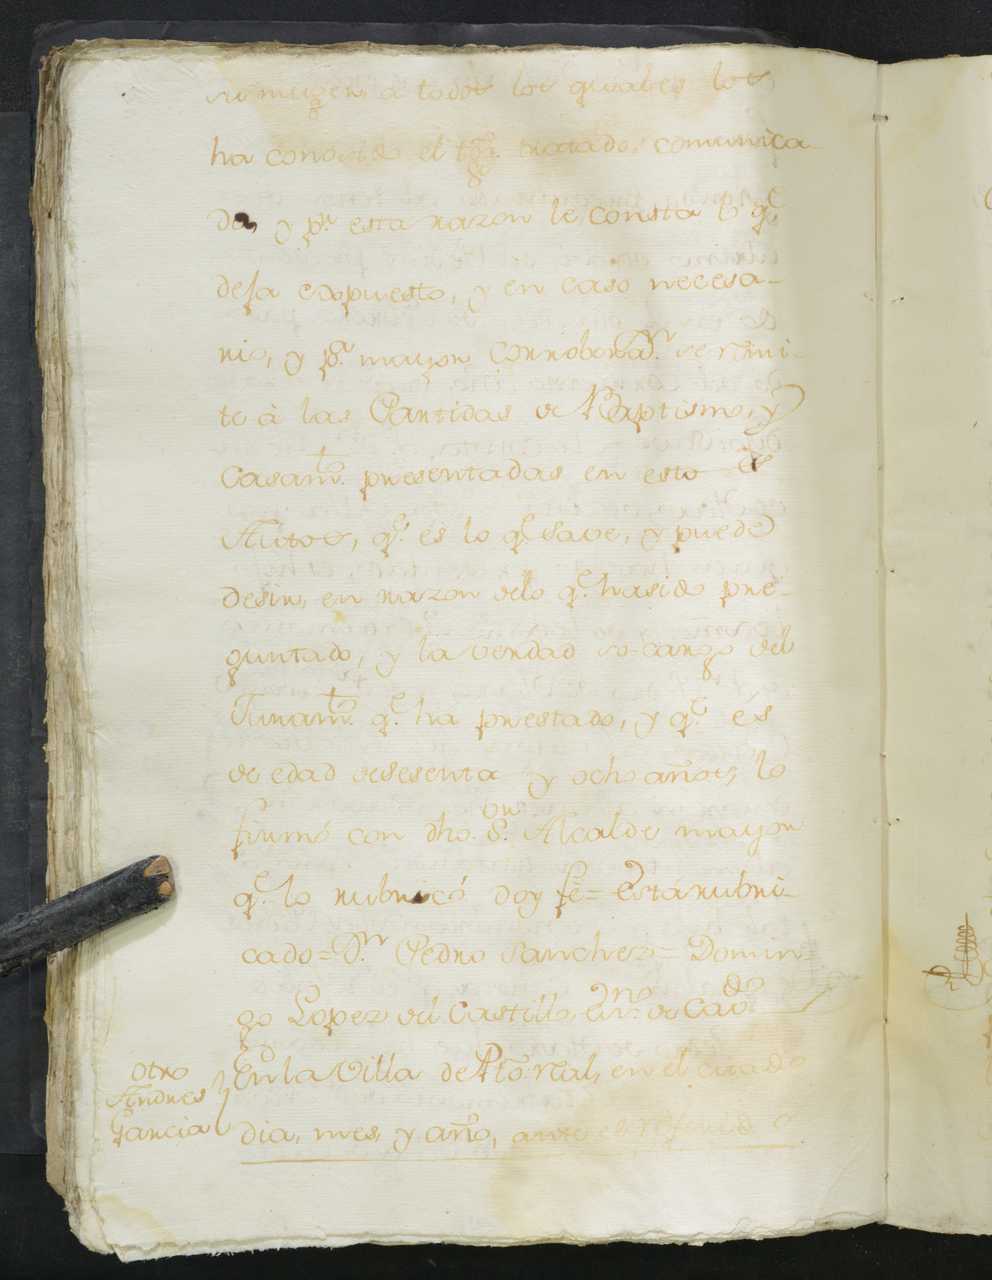 su muger, a todos los quales los
ha conosido el tgo. tratado, comunica
do, y pr. esta razon le consta lo q.e
deja expuesto, y en caso necesa-
rio, y pa. mayor corrobon. se remi-
te à las Partidas de Baptismo, y
Casamto. presentadas en esto s
Autos, q.e és lo q.e save, y puede
desir, en razon delo q.e ha sido pre-
guntado, y la verdad so-cargo del
Juramto. q.e ha prestado, y q.e és
de edad de sesenta y ocho años, lo
firmó con dho. Sor. Alcalde mayor
q.e lo rubricó doy fé = está rubri-
cado = Dn. Pedro Sanchez = Domin-
go Lopez del Castillo, Esno. de Cavdo.
Otro
Andres
Garcia
En la Villa de Pto. real, en el citado
dia, mes, y año, ante el referido